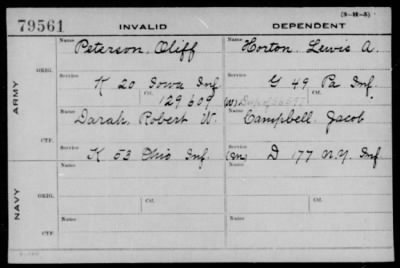 (3-H-5)
79561 INVALID DEPENDENT
Name Peterson, Oliff Name Horton, Lewis A.
ARMY
ORIG.
Service K 20 Iowa Inf Service G 49 Pa Inf.
Ctf. 129609 Ctf. (W)
Name Darah, Robert W. Name Campbell, Jacob
CTF.
Service K 53 Ohio Inf. Service (M) D 177 N.Y. Inf
NAVY
Name Name
ORIG.
Service Ctf. Service Ctf.
Name Name
CTF.
Service Service